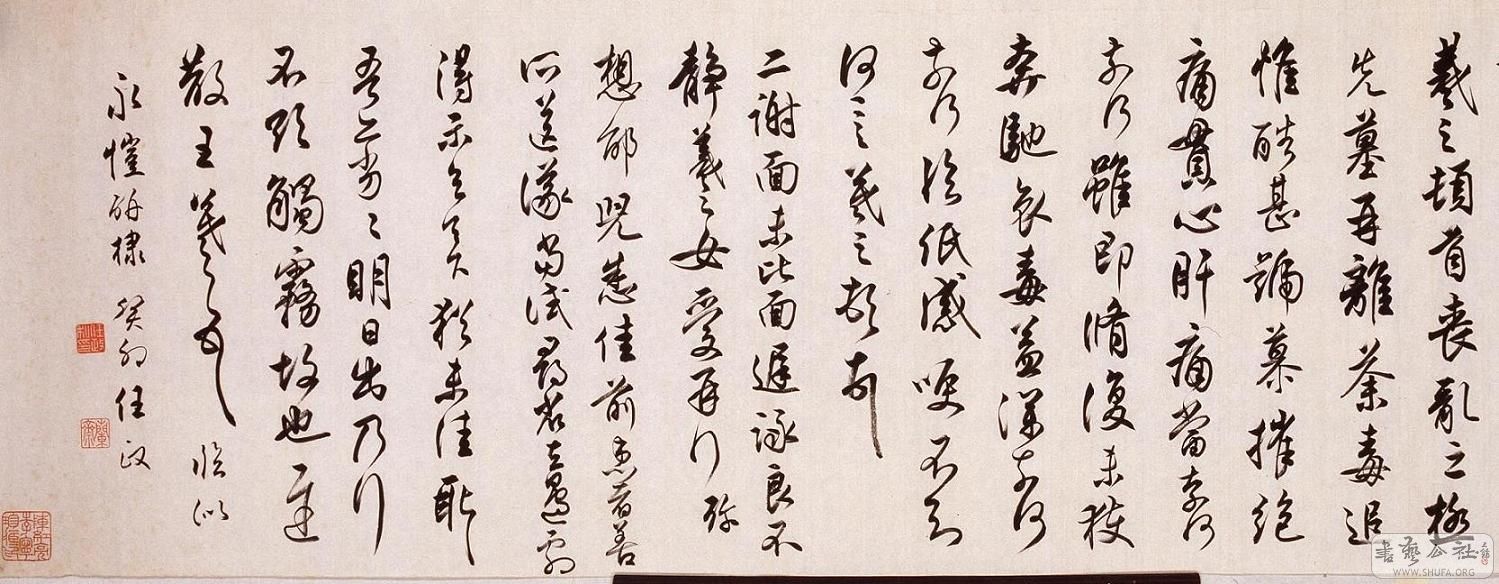 羲之頓首喪亂之極
先墓再離荼毒追
惟酷甚號慕摧絕
痛貫心肝痛當奈何
奈何雖即脩復未獲
奔馳哀毒益深奈何
奈何臨紙感哽不知
何言羲之頓首
二謝面未比面遲詠良不
靜羲之女愛再拜 珎
想邰兒悉佳前患者善
所送議當試尋省左邊劇
得示知足下猶未佳耿
吾亦劣々明日出乃行
不欲觸霧故也遲
散王羲之頓首 臨似
永愷研棣 癸卯任政
書藝公社
WWW.SHUFA.ORG